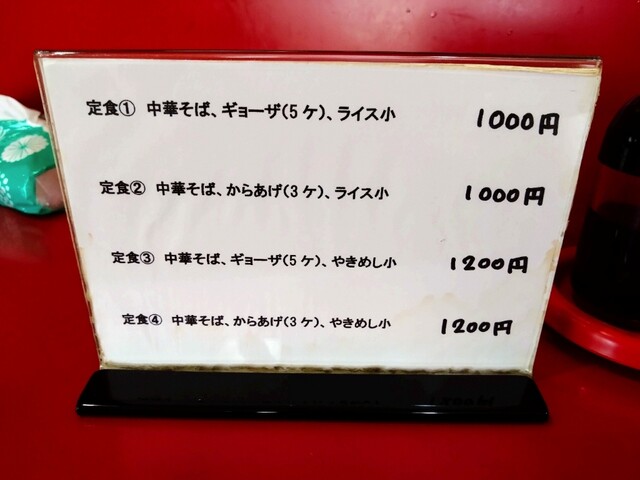 定食① 中華そば、ギョーザ(5ケ)、ライス小 1000円
定食② 中華そば、からあげ(3ケ)、ライス小 1000円
定食③ 中華そば、ギョーザ(5ケ)、やきめし小 1200円
定食④ 中華そば、からあげ(3ケ)、やきめし小 1200円